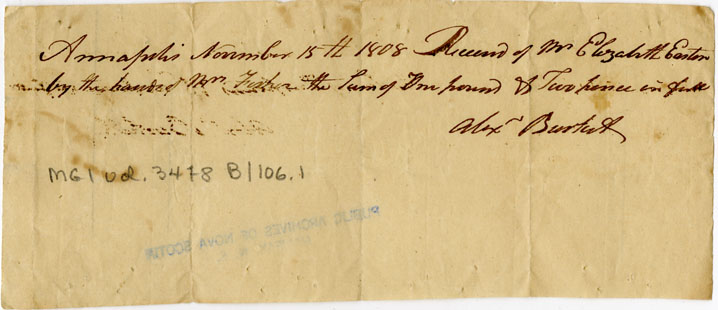 Annapolis November 15th 1808 Received of Mrs Elizabeth Easton
by the hands of Mr. Fisher the Sum of One pound & Two pence in full
Alexr Burket
MG1 vol. 3478 B/106.1
PUBLIC ARCHIVES OF NOVA SCOTIA